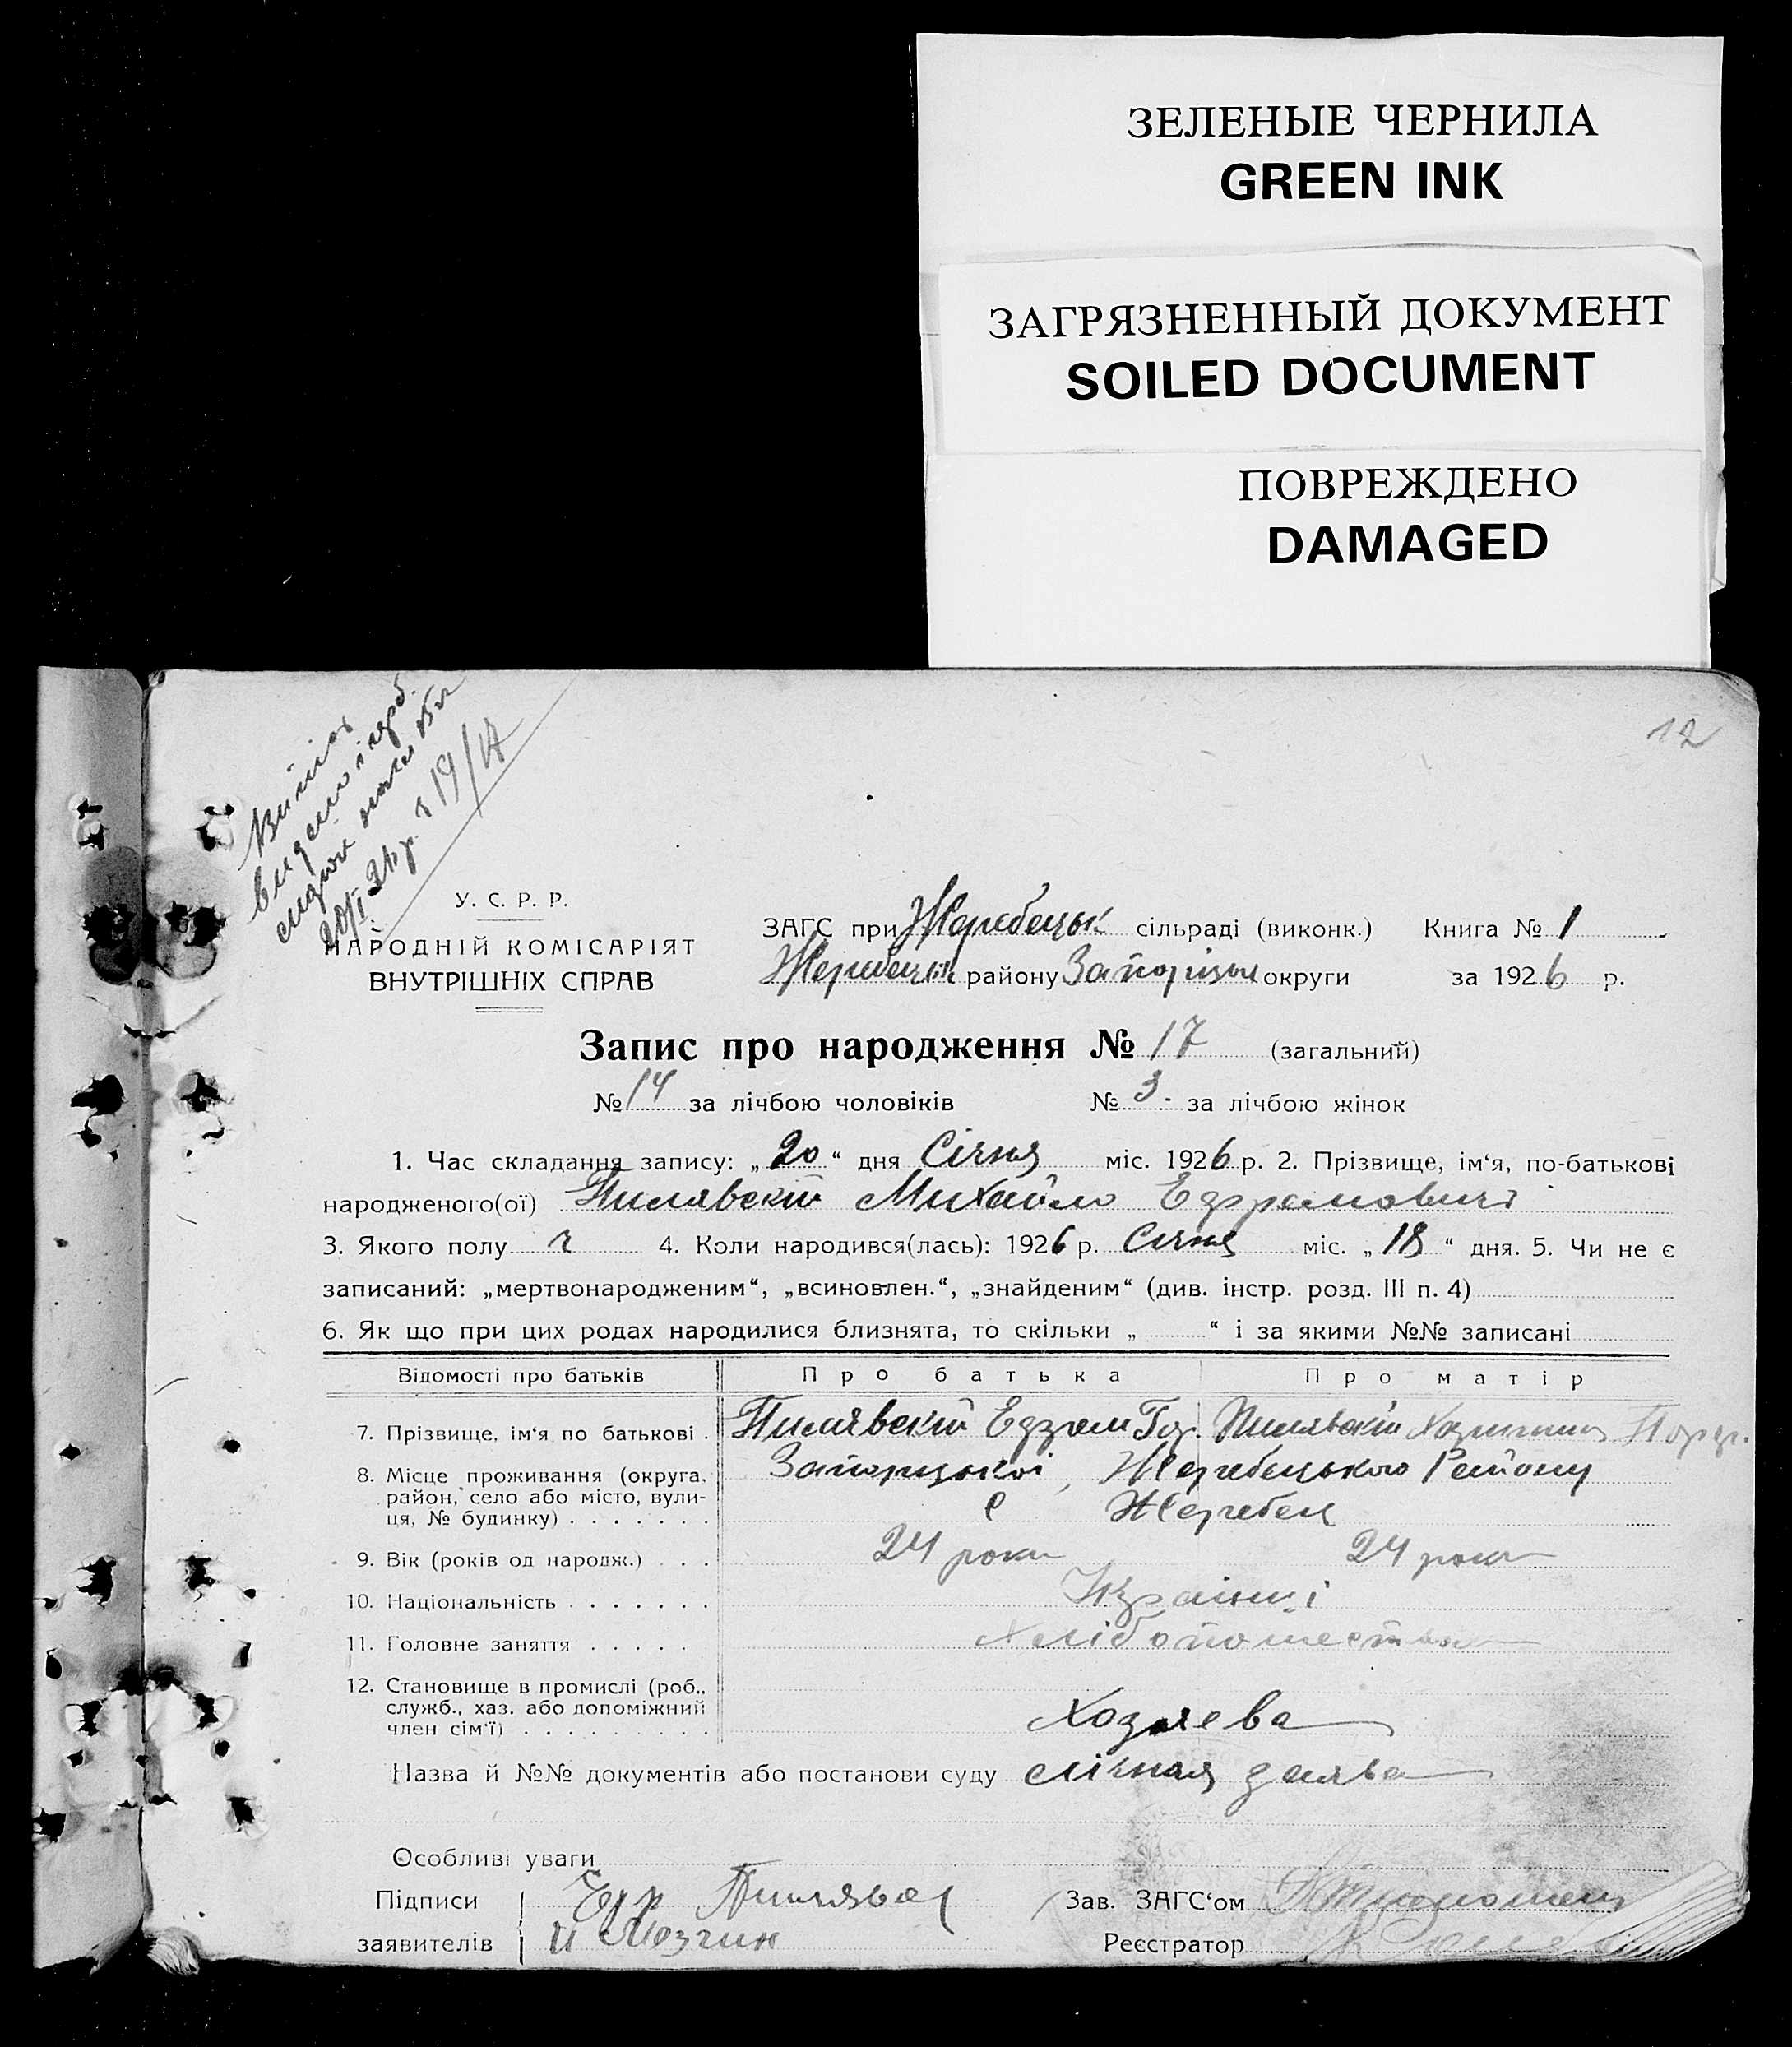 ЗЕЛЕНЫЕ ЧЕРНИЛА
GREEN INK
ЗАГРЯЗНЕННЫЙ ДОКУМЕНТ
SOILED DOCUMENT
ПОВРЕЖДЕНО
DAMAGED
12
У. С. Р. Р.
НАРОДНІЙ КОМІСАРІЯТ
ВНУТРІШНІХ СПРАВ
ЗАГС при Жеребецьк сільраді (виконк.) Книга № 1
Жеребецьк району Запоріцьк округи за 1926 р.
Запис про народження № 17 (загальний)
№ 14 за лічбою чоловіків № 3 за лічбою жінок
1. Час складання запису: „20“ дня Січня міс. 1926 р. 2. Прізвище, ім‘я, по-батькові
народженого(ої) Пилявский Михайло
3. Якого полу ч 4. Коли народився(лась): 1926 р. Січня міс. „18“ дня. 5. Чи не є
записаний: „мертвонародженим“, „всиновлен.“, „знайденим“ (див. інстр. розд. III п. 4)
6. Як що при цих родах народилися близнята, то скільки „ “ і за якими №№ записані
Відомості про батьків Про батька Про матір
7. Прізвище, ім‘я по батькові . Пилявский
8. Місце проживання (округа, район, село або місто, вулиця, № будинку) . . . . . . . Запорізької, Жеребецького Району
с Жеребец
9. Вік (років од народж.) . . . 24 роки 24 роки
10. Національність . . . . . . . Українці
11. Головне заняття . . . . . Хлібопашество
12. Становище в промислі (роб., служб., хаз. або допоміжний член сім‘ї) . . . . . . . . . Хозяева
Назва й №№ документів або постанови суду заява
Особливі уваги
Підписи Зав. ЗАГС‘ом
заявителів Реєстратор